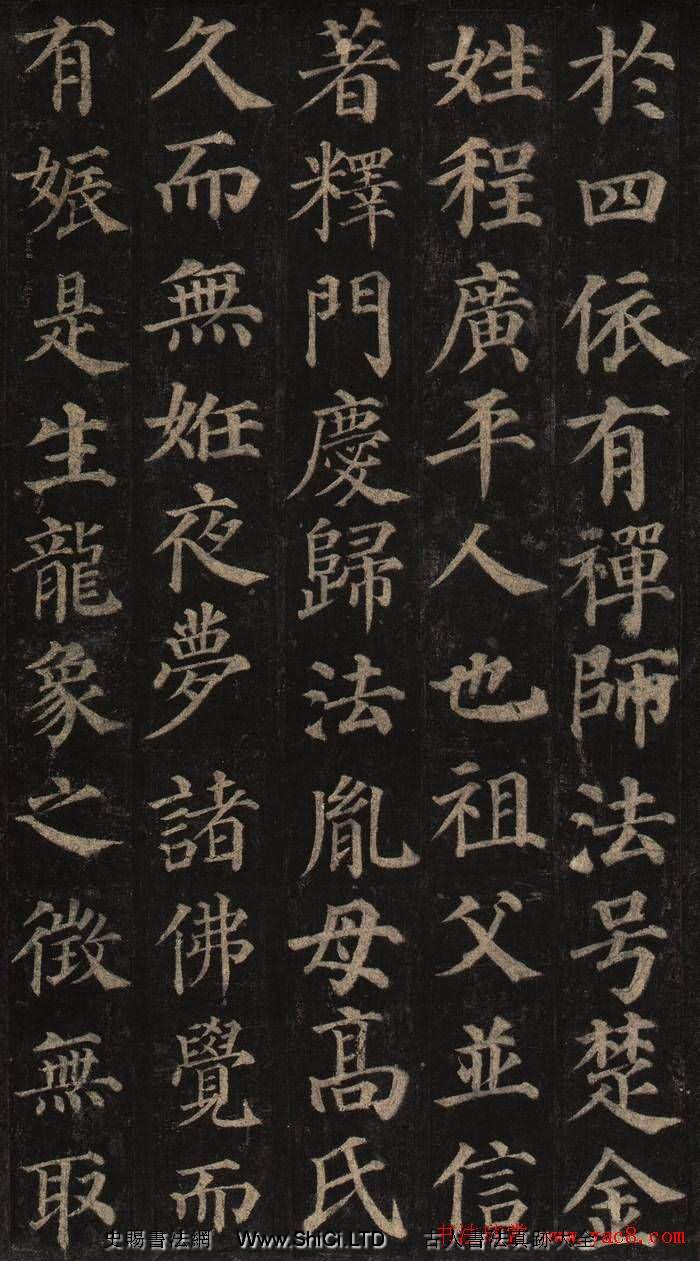 於四依有禪師法号楚金
姓程廣平人也祖父並信
著釋門慶歸法胤母高氏
久而無姙夜夢諸佛覺而
有娠是生龍象之徵無取
史賜書法網 WWW.ShiCi.LTD 古人書法真跡大全